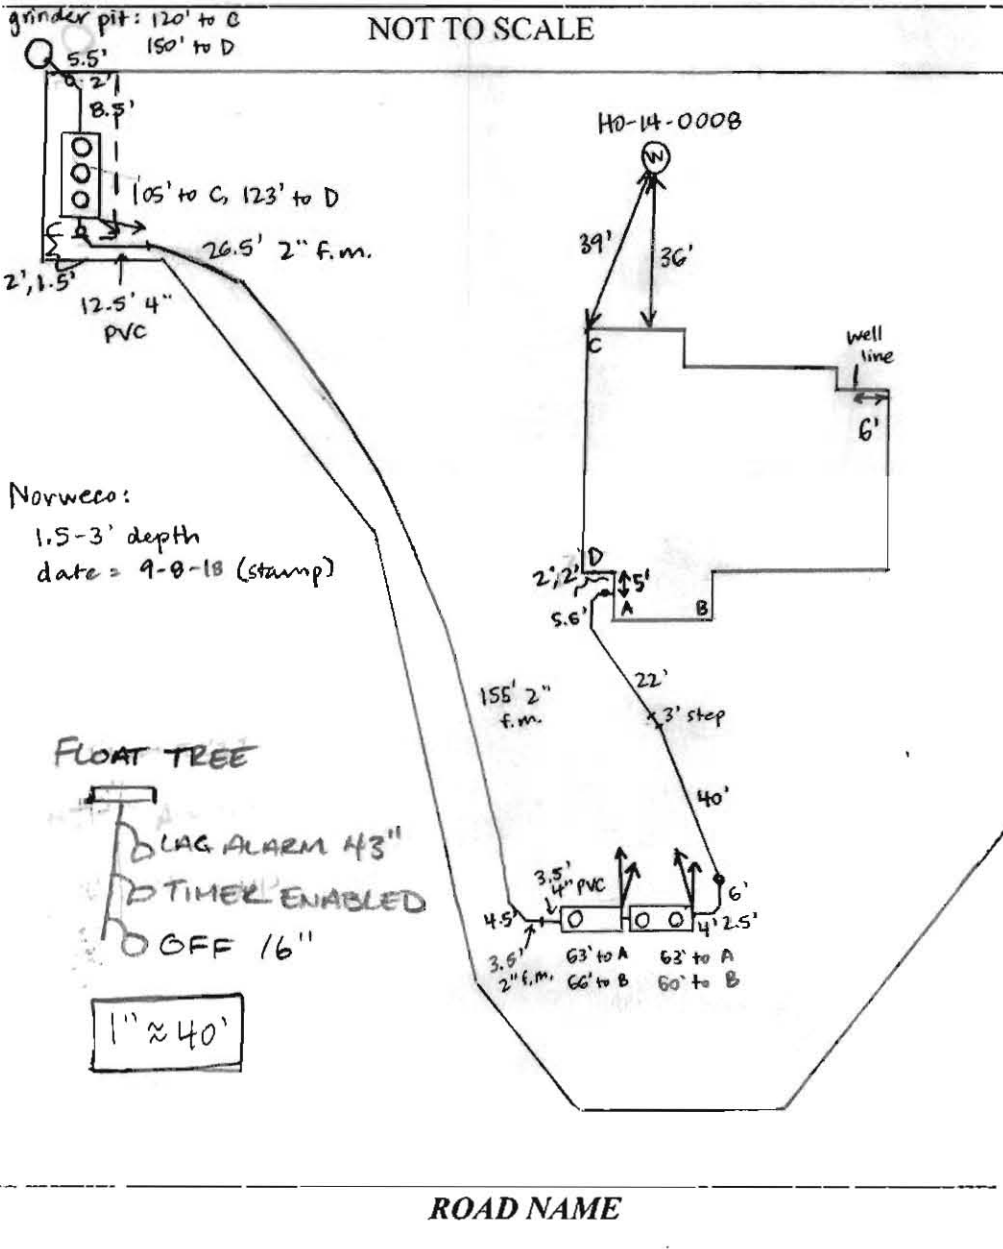 grinder pit: 120' to C
150' to D
NOT TO SCALE
5.5'
2'
8.5'
105' to C, 123' to D
26.5' 2" f.m.
2', 1.5'
12.5' 4"
PVC
HO-14-0008
W
39'
36'
C
well
line
6'
Norweco:
1.5-3' depth
date = 9-8-18 (stamp)
D
2', 2'
5'
A
B
22'
3' step
155' 2"
f.m.
40'
FLOAT TREE
LAG ALARM 43"
TIMER ENABLED
OFF 16"
1" ≈ 40'
3.5'
4" PVC
4.5'
6'
4' 2.5'
2" f.m.
63' to A
66' to B
63' to A
60' to B
ROAD NAME